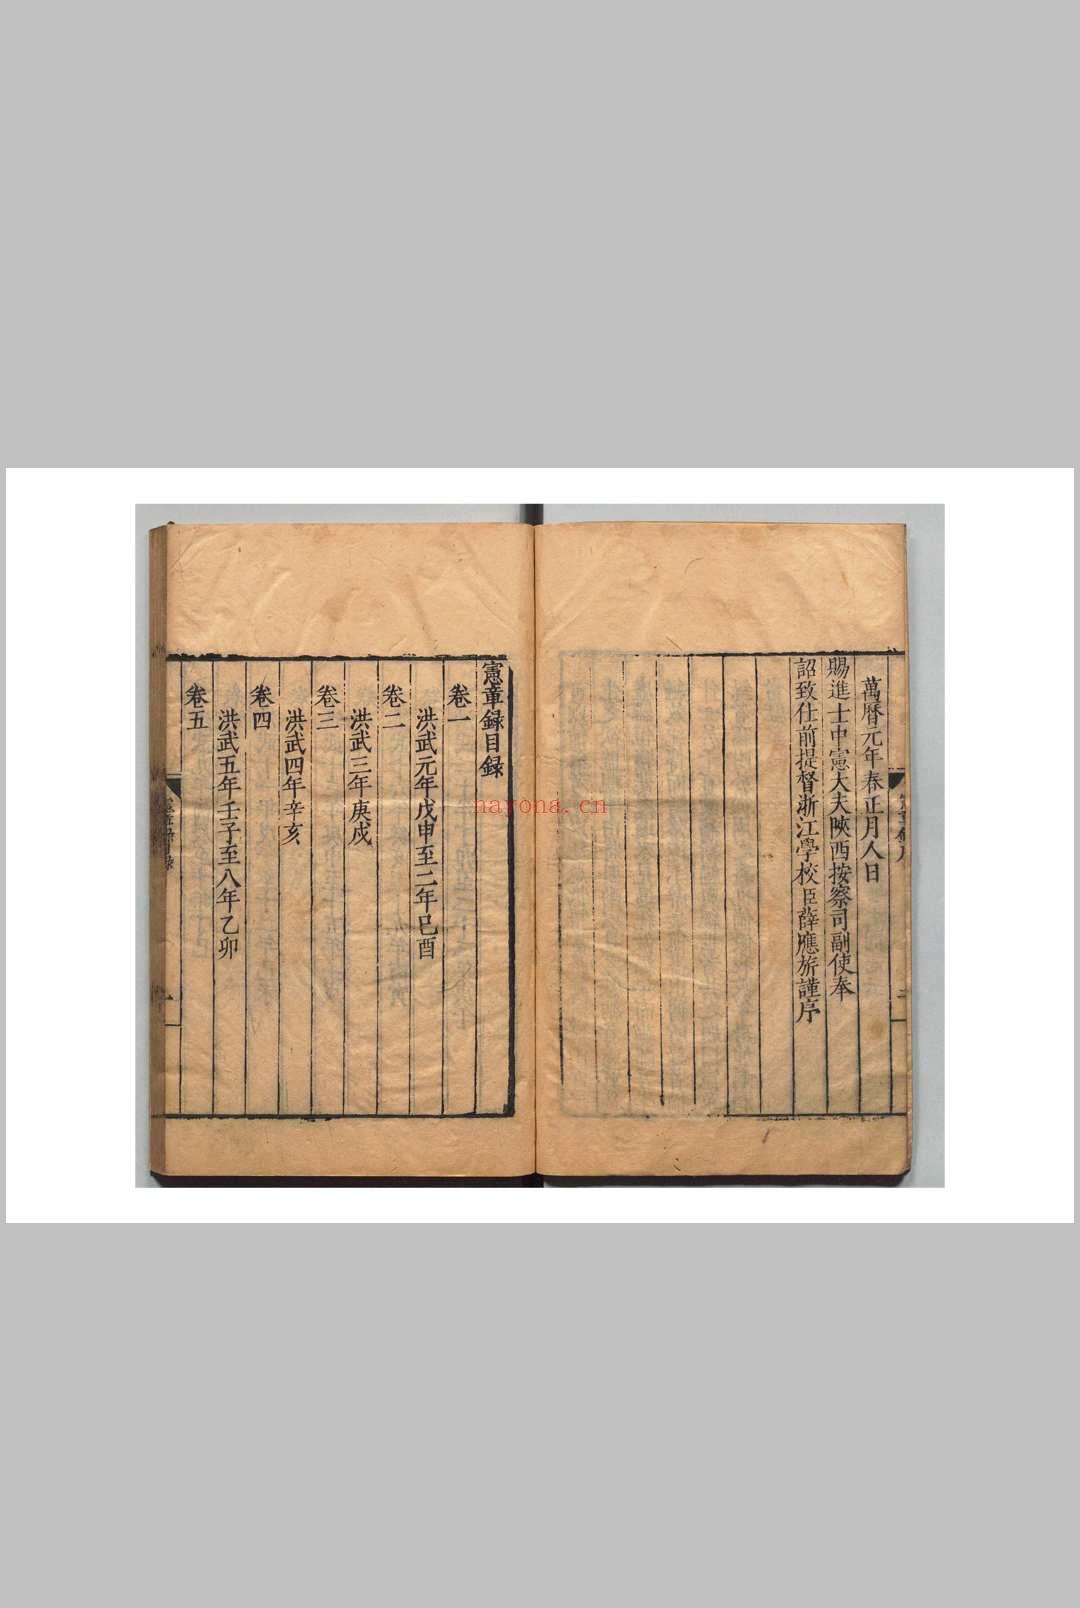 萬曆元年春正月人日
賜進士中憲大夫陝西按察司副使奉
詔致仕前提督浙江學校臣薛應旂謹序
憲章錄目錄
卷一
洪武元年戊申至二年己酉
卷二
洪武三年庚戌
卷三
洪武四年辛亥
卷四
洪武五年壬子至八年乙卯
卷五
nayona.cn